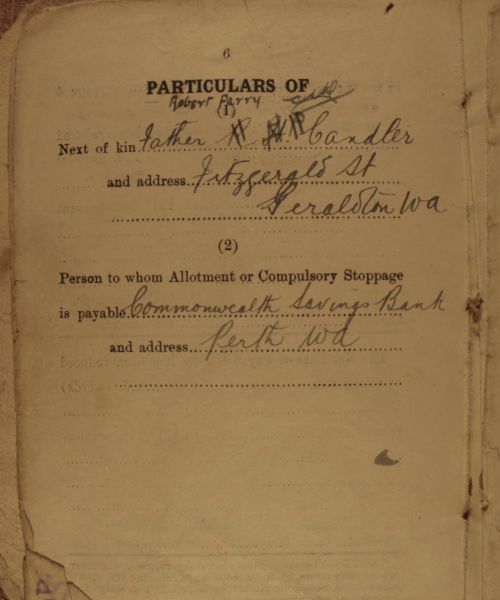 6
PARTICULARS OF
Robert Parry
(1)
Next of kin Father Candler
and address Fitzgerald St
Geraldton WA
(2)
Person to whom Allotment or Compulsory Stoppage
is payable Commonwealth Savings Bank
and address Perth WA